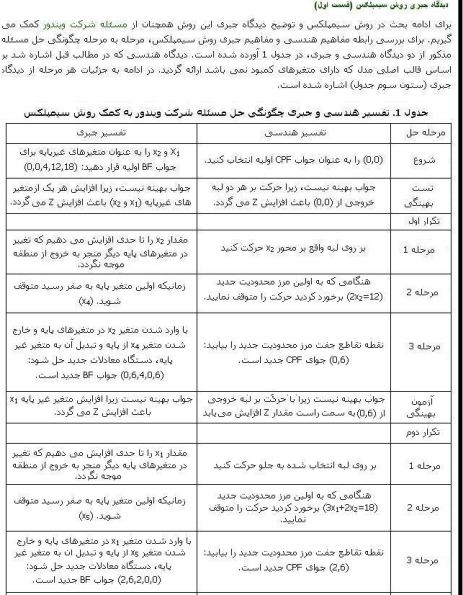 دیدگاه جبری روش سیمپلکس (قسمت اول)
برای ادامه بحث در روش سیمپلکس و توضیح دیدگاه جبری این روش همچنان از مسئله شرکت ویندور کمک می
گیریم. برای بررسی رابطه مفاهیم هندسی و مفاهیم جبری روش سیمپلکس، مرحله به مرحله چگونگی حل مسئله
مذکور از دو دیدگاه هندسی و جبری، در جدول 1 آورده شده است. دیدگاه هندسی که در مطالب قبل اشاره شد بر
اساس قالب اصلی مدل که دارای متغیرهای کمبود نمی باشد ارائه گردید. در ادامه به جزئیات هر مرحله از دیدگاه
جبری (ستون سوم جدول) اشاره شده است.
جدول 1. تفسیر هندسی و جبری چگونگی حل مسئله شرکت ویندور به کمک روش سیمپلکس
مرحله حل
تفسیر هندسی
تفسیر جبری
شروع
(0,0) را به عنوان جواب CPF اولیه انتخاب کنید.
X1 و x2 را به عنوان متغیرهای غیرپایه برای
جواب BF اولیه قرار دهید: (0,0,4,12,18)
تست
بهینگی
جواب بهینه نیست، زیرا حرکت بر هر دو لبه
خروجی از (0,0) باعث افزایش Z می گردد.
جواب بهینه نیست، زیرا افزایش هر یک ازمتغیر
های غیرپایه (x1 و x2) باعث افزایش Z می گردد.
تکرار اول
مرحله 1
بر روی لبه واقع بر محور x2 حرکت کنید
مقدار x2 را تا حدی افزایش می دهیم که تغییر
در متغیرهای پایه دیگر منجر به خروج از منطقه
موجه نگردد.
مرحله 2
هنگامی که به اولین مرز محدودیت جدید
(2x2=12) برخورد کردید حرکت را متوقف نمایید.
زمانیکه اولین متغیر پایه به صفر رسید متوقف
شوید. (x4)
مرحله 3
نقطه تقاطع جفت مرز محدودیت جدید را بیابید:
(0,6) جوای CPF جدید است.
با وارد شدن متغیر x2 در متغیرهای پایه و خارج
شدن متغیر x4 از پایه و تبدیل آن به متغیر غیر
پایه، دستگاه معادلات جدید حل شود:
(0,6,4,0,6) جواب BF جدید است.
آزمون
بهینگی
جواب بهینه نیست زیرا با حرکت بر لبه خروجی
از (0,6) به سمت راست مقدار Z افزایش می یابد
جواب بهینه نیست زیرا افزایش متغیر غیر پایه x1
باعث افزایش Z می گردد.
تکرار دوم
مرحله 1
بر روی لبه انتخاب شده به جلو حرکت کنید
مقدار x1 را تا حدی افزایش می دهیم که تغییر
در متغیرهای پایه دیگر منجر به خروج از منطقه
موجه نگردد.
مرحله 2
هنگامی که به اولین مرز محدودیت جدید
(3x1+2x2=18) برخورد کردید حرکت را متوقف
نمایید.
زمانیکه اولین متغیر پایه به صفر رسید متوقف
شوید. (x5)
مرحله 3
نقطه تقاطع جفت مرز محدودیت جدید را بیابید:
(2,6) جوای CPF جدید است.
با وارد شدن متغیر x1 در متغیرهای پایه و خارج
شدن متغیر x5 از پایه و تبدیل آن به متغیر غیر
پایه، دستگاه معادلات جدید حل شود:
(2,6,2,0,0) جواب BF جدید است.